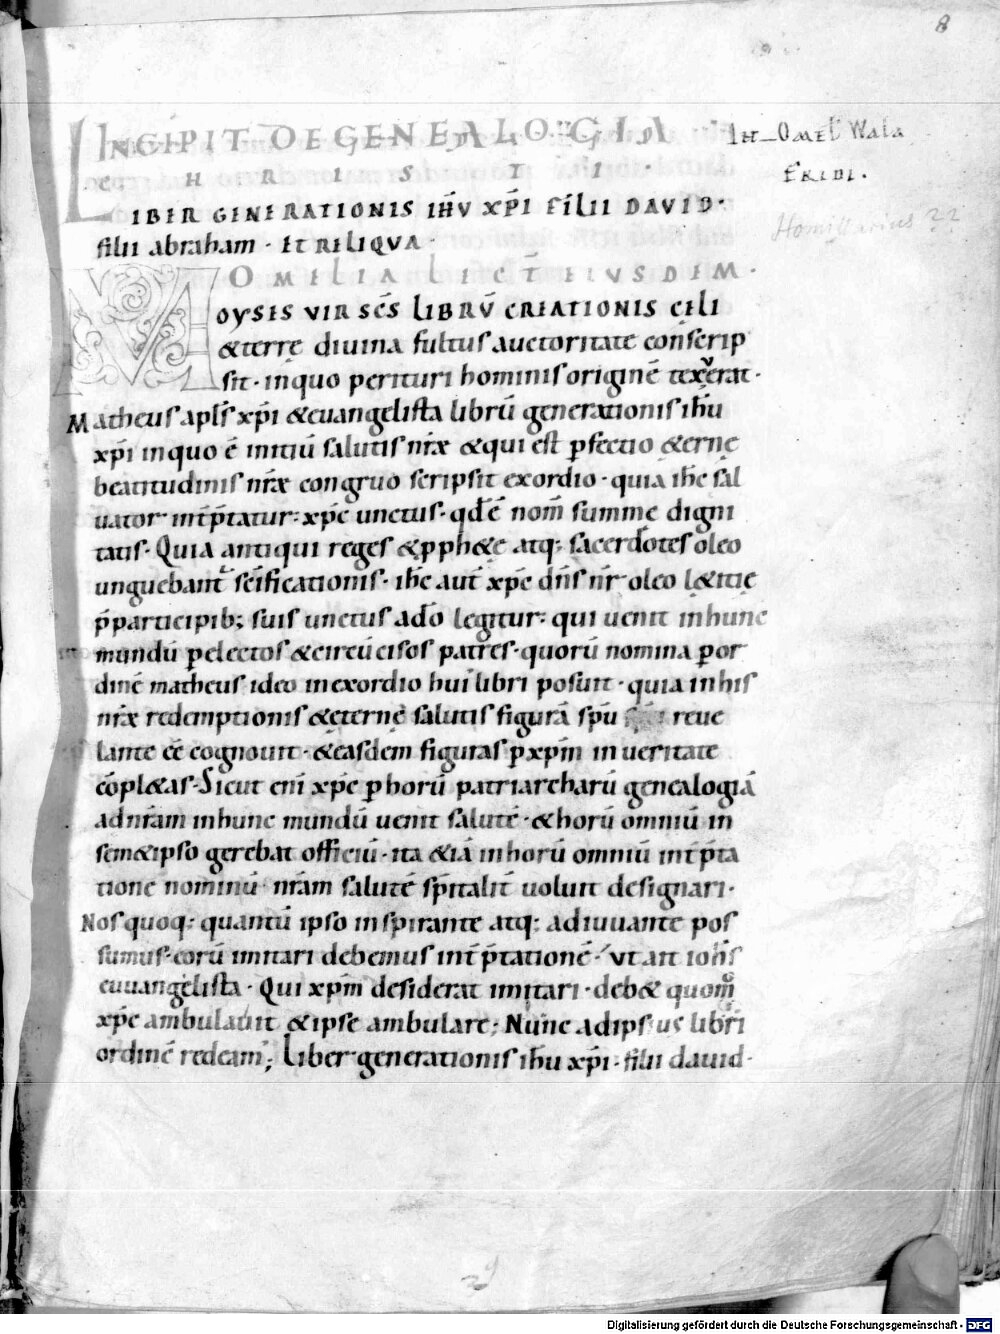 8
INCIPIT DE GENEALOGIA
CHRISTI.
LIBER GENERATIONIS IHŪ XP̄I FILII DAVID.
filii abraham. ET RELIQVA.
OMELIA LECT̄ EIVSDEM.
MOYSIS VIR SC̄S LIBRŪ CREATIONIS CĘLI
& terrę divina fultus auctoritate conscrip
sit. in quo perituri hominis originē texerat.
Matheus apl̄s xp̄i & euangelista librū generationis ih̄u
xp̄i in quo ē initiū salutis nr̄ę & qui est p̄fectio & ernę
beatitudinis nr̄ę congruo scripsit exordio. quia ih̄c sal
uator int̄p̄tatur: xp̄c unctus. qd̄ ē nom̄ summę digni
tatis. Quia antiqui reges & pph&ę atq: sacerdotes oleo
unguebant sc̄ificationis. ih̄c aut̄ xp̄c dn̄s nr̄ oleo l&itię
p̄ participib; suis unctus a dō legitur: qui uenit in hunc
mundū p electos & circūcisos patres. quorū nomina p or
dinē matheus ideo in exordio hui libri posuit. quia in his
nr̄ę redemptionis & ęternę salutis figurā sp̄u reue
lante ēē cognouit. & easdem figuras p xp̄m in ueritate
cōpl&as. Sicut eni xp̄c p horū patriarcharū genealogiā
ad nr̄am in hunc mundū uenit salutē. & horū omniū in
sem&ipso gerebat officiū. ita &iā in horū omniū int̄p̄ta
tione nominū nr̄am salutē sp̄italit̄ uoluit designari.
Nos quoq: quantū ipso inspirante atq: adiuuante pos
sumus. eorū imitari debemus int̄p̄tationē. ut ait ioh̄s
euuangelista. Qui xp̄m desiderat imitari. deb& quom̊
xp̄c ambulauit & ipse ambulare; Nunc ad ipsius libri
ordinē redeam; Liber generationis ih̄u xp̄i. filii dauid.
Homiliarius ??
Digitalisierung gefördert durch die Deutsche Forschungsgemeinschaft - DFG